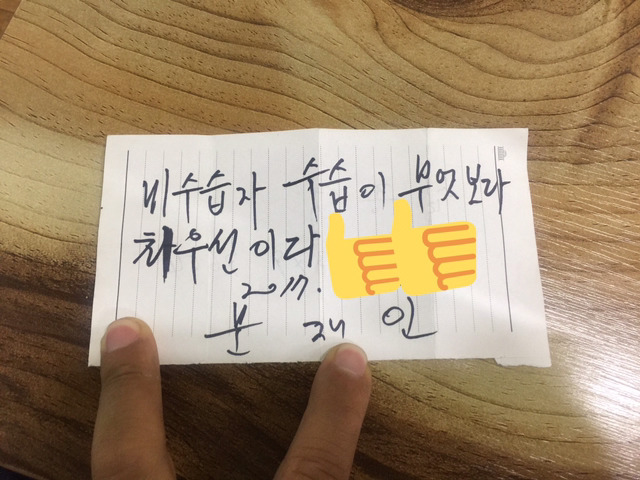 미수습자 수습이 무엇보다
최우선이다
2017.
문 재 인